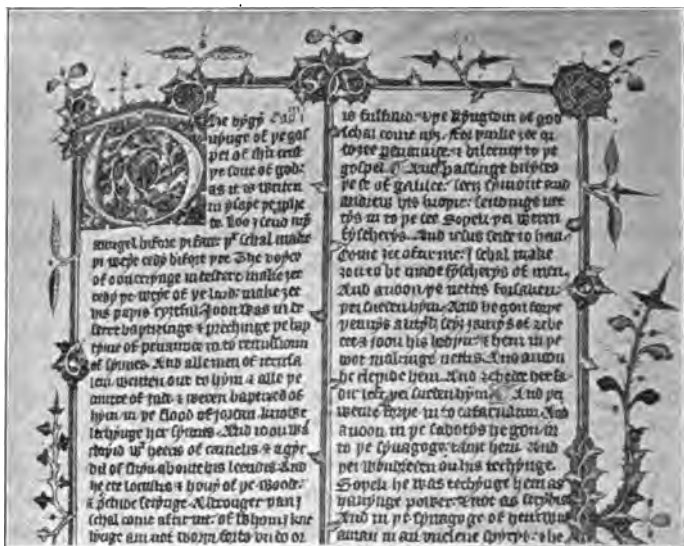 The bygyn
nynge of þe gos
pel of
þe sone of god:
as it is writen
in ysaye þe
te. Loo I send
aungel bifore þi face: þt schal make
þi weye redy bifore þee. The voyce
of oon cryinge in desert: make ȝee
redy þe weye of þe lord: make ȝee
his paþis ryȝtful. Joon was in de
sert baptisinge & prechinge þe bap
tyme of penaunce in to remissioun
of synnes. And alle men of ierusa
lem wenten out to hym & alle þe
cuntre of Jude: & weren baptised of
hym in þe flood of jordan
lechynge her synnes. And Joon was
wt heeris of camelis & a gyr
dil of skyn aboute his leendes. And
he ete locustis & hony of þe wood:
& seiynge. A stronger þan I
schal come aftir me: of whom I kne
lynge am not worþi forto vndo or
is fulfillid: & þe kyngdom of god
schal come nyȝ. For þinke ȝee or
do ȝee penaunce: & bileeue to þe
gospel. And passinge bisydes
þe se of galilee: seeȝ symount and
andrew his broþer: sendinge net
tys in to þe see. Soþeli þei weren
fyscherys. And iesus seide to hem.
Come ȝee aftir me: I schal make
ȝou to be made fyscherys of men.
And anoon þe nettis forsaken:
þei sueden hym. And he gon forþe
þennys a lytyl: seyȝ jamys of zebe
dee & joon his broþer: & hem in þe
boot makinge nettis. And anoon
he clepide hem. And zebedee her fa
dir left: þei sueden hym. And þei
wente forþe in to cafarnaum. And
anoon in þe sabotys he gon in
to þe synagoge: tauȝt hem. And
þei wondreden on his techynge.
Soþeli he was techynge hem as
hauynge power: & not as scrybis.
And in þe synagoge of hem was
a man in an vnclene spyryt: &he